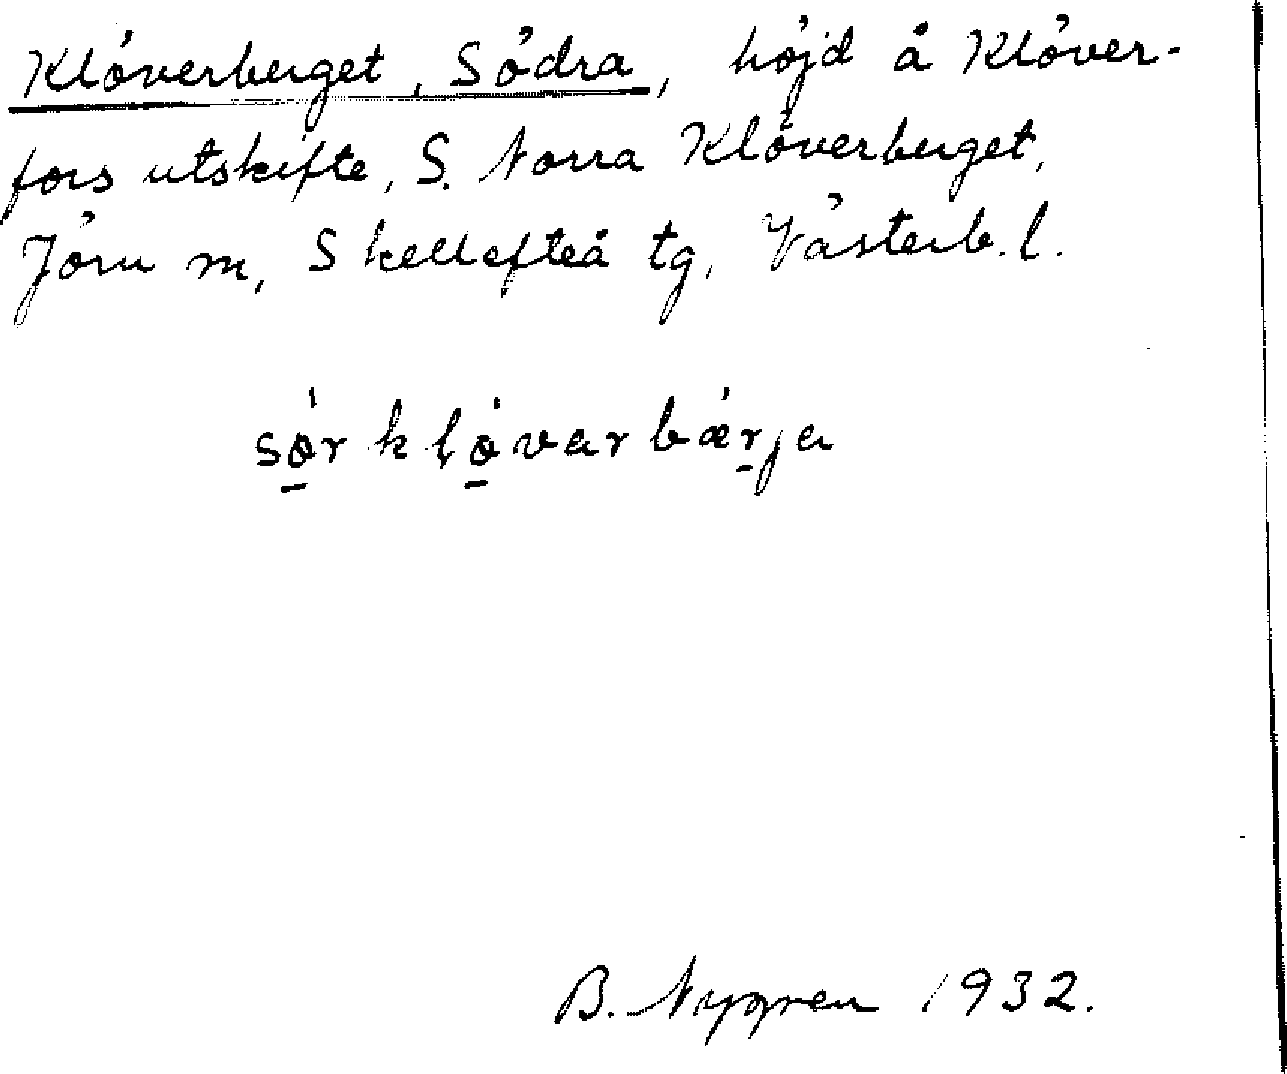 Klöverberget, Södra, höjd å Klöver-
fors utskifte, S. Norra Klöverberget,
Jörn m, Skellefteå tg, Västerb. l.
sö̠́rklö̠́varbær̠ja
B. Nygren 1932.